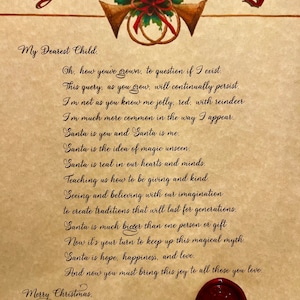 My Dearest Child,
Oh, how youve grown, to question if I exist.
This query, as you grow, will continually persist.
I'm not as you know me jolly, red, with reindeer
I'm much more common in the way I appear.
Santa is you and Santa is me.
Santa is the idea of magic unseen
Santa is real in our hearts and minds.
Teaching us how to be giving and kind.
Seeing and believing with our imagination
to create traditions that will last for generations.
Santa is much bigger than one person or gift
Now it's your turn to keep up this magical myth.
Santa is hope, happiness, and love.
And now you must bring this joy to all those you love.
Merry Christmas,